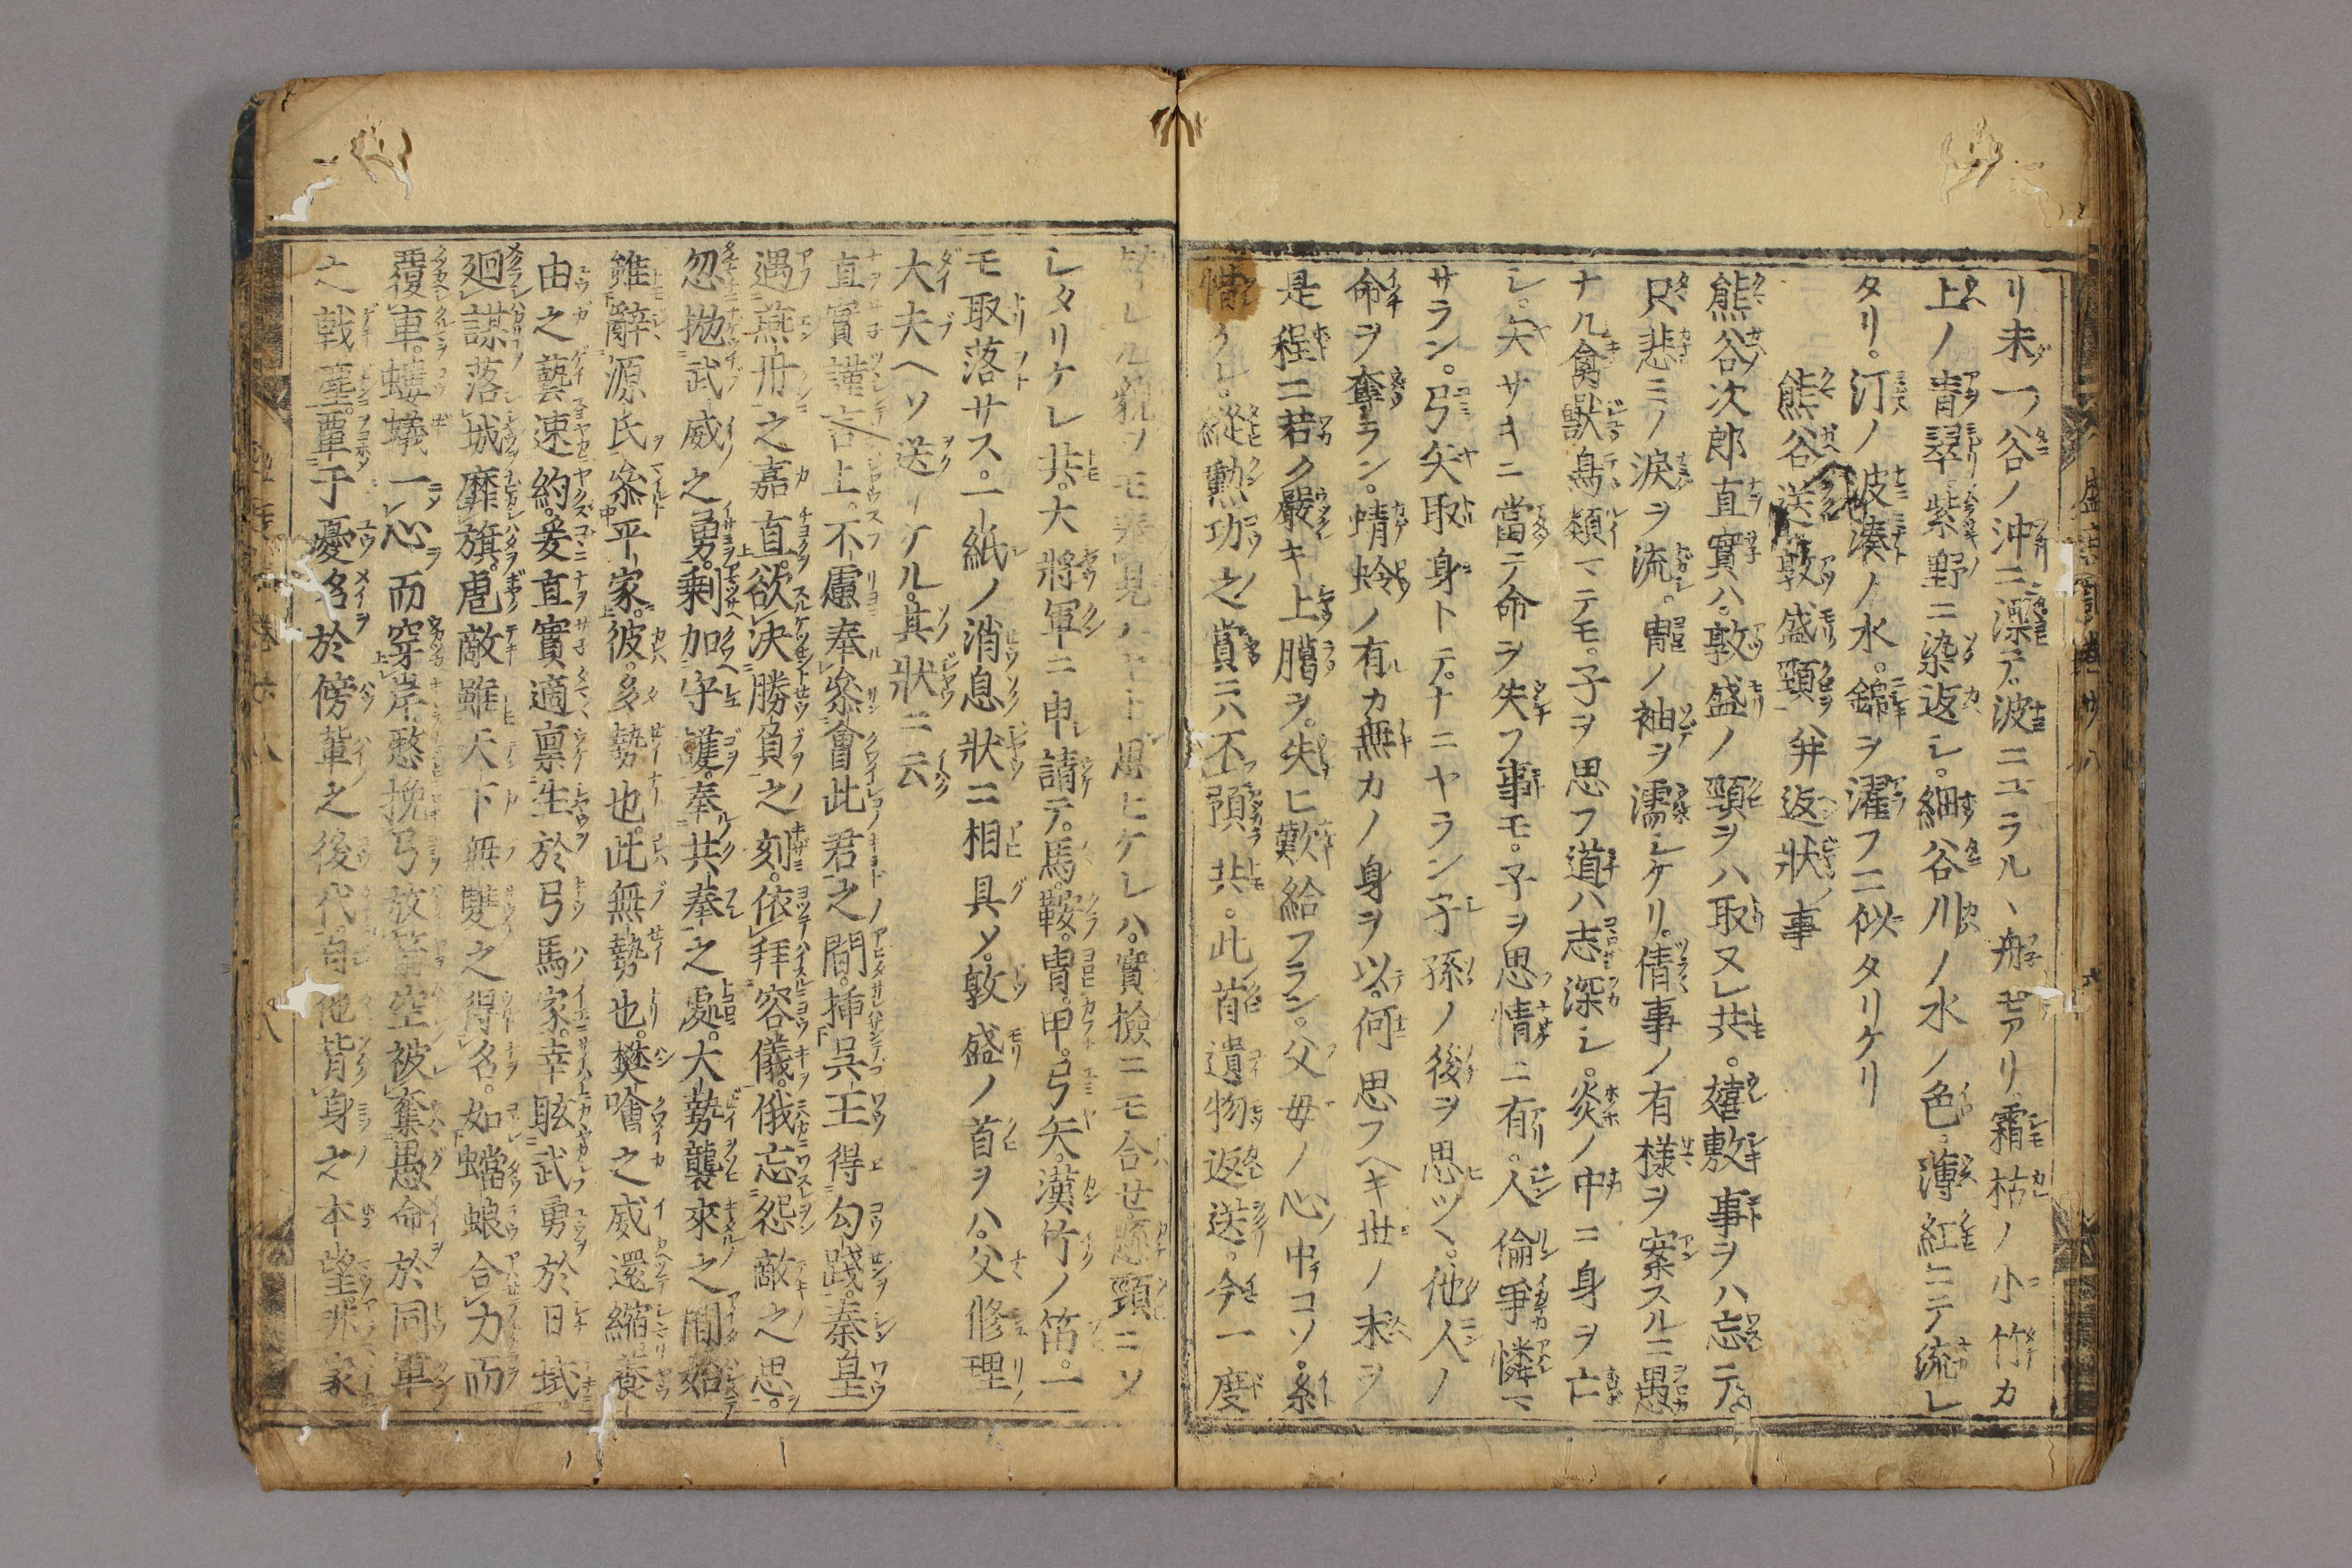 リ未一ノ谷ノ沖ニ漂テ波ニユラルヽ舟モアリ霜枯ノ小竹カ
上ノ青翠紫野ニ染返シ。細谷川ノ水ノ色。薄紅ニテ流レ
タリ。汀ノ波湊ノ水。錦ヲ濯フニ似タリケリ
熊谷送敦盛頸并返狀事
熊谷次郎直實ハ。敦盛ノ頸ヲハ取ヌレ共。嬉敷事ヲハ忘テ。
只悲ミノ淚ヲ流。冑ノ袖ヲ濡シケリ。倩事ノ有樣ヲ案スルニ愚
ナル禽獸鳥類マテモ。子ヲ思フ道ハ志深シ。炎ノ中ニ身ヲ亡
シ。矢サキニ當テ命ヲ失フ事モ。子ヲ思情ニ有。人倫爭憐マ
サラン。弓矢取身トテ。ナニヤラン子孫ノ後ヲ思ツヽ。他人ノ
命ヲ奪ラン。蜻蛉ノ有カ無カノ身ヲ以。何思フヘキ世ノ末ヲ
是程ニ若ク嚴キ上﨟ヲ。失ヒ歎給フラン。父母ノ心中コソ。糸
惜ケレ。縱勲功之賞ニハ不預共。此首遺物返送。今一度
替レル貌ヲモ奉見ハヤト思ヒケレハ。實撿ニモ合せ懸頸ニソ
シタリケレ共。大將軍ニ申請テ。馬。鞍。冑。甲。弓矢。漢竹ノ笛。一
モ取落サス。一紙ノ消息狀ニ相具ソ。敦盛ノ首ヲハ。父修理
大夫ヘソ送リケル。其狀ニ云
直實謹言上。不慮奉參會此君之間。挿呉王得勾踐。秦皇
遇燕丹之嘉直。欲決勝負之刻。依拜容儀。俄忘怨敵之思。
忽抛武威之勇。剰加守護奉共奉之處。大勢襲來之間。始
雖辭源氏參平家。彼多勢也。此無勢也。樊噲之威還縮。養
由之藝速約。爰直實適禀生於弓馬家。幸眩武勇於日域。
廻謀落城靡旗。虐敵雖天下無雙之得名。如蟷蜋合力而
覆車。螻蟻一心而穿岸。憖挽弓放箭空被奪愚命於同軍
之戟塵。覃于憂名於傍輩之後代。自他皆身之本望。非家